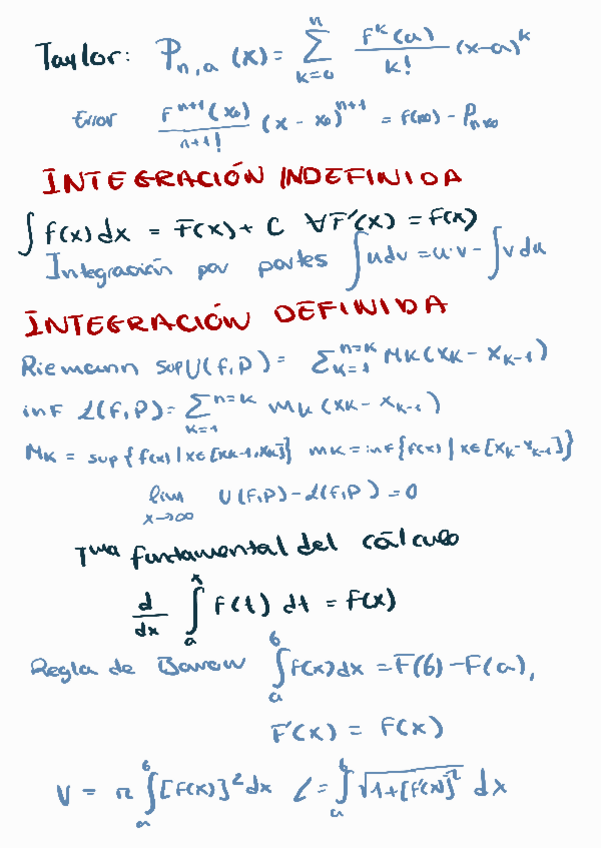 Taylor: P_{n,a} (x) = ∑_{k=0}^{n} \frac{f^k (a)}{k!} (x-a)^k
Error \frac{f^{n+1}(x_0)}{n+1!} (x - x_0)^{n+1} = f(x_0) - P_{n,x_0}
INTEGRACIÓN INDEFINIDA
∫ f(x) dx = F(x) + C ∀F'(x) = f(x)
Integración por partes ∫ u dv = u·v - ∫ v du
INTEGRACIÓN DEFINIDA
Riemann sup U(f,P) = ∑_{k=1}^{n=k} M_K (x_K - x_{K-1})
inf L(f,P) = ∑_{k=1}^{n=k} m_k (x_K - x_{K-1})
M_K = sup {f(x) | x ∈ [x_{K-1}, x_K]} m_K = inf {f(x) | x ∈ [x_K - x_{K-1}]}
lim_{x→∞} U(f,P) - L(f,P) = 0
Tma fundamental del cálculo
\frac{d}{dx} ∫_a^x f(t) dt = f(x)
Regla de Barrow ∫_a^b f(x) dx = F(b) - F(a),
F'(x) = f(x)
V = π ∫_a^b [f(x)]^2 dx L = ∫_a^b √{1+[f'(x)]^2} dx